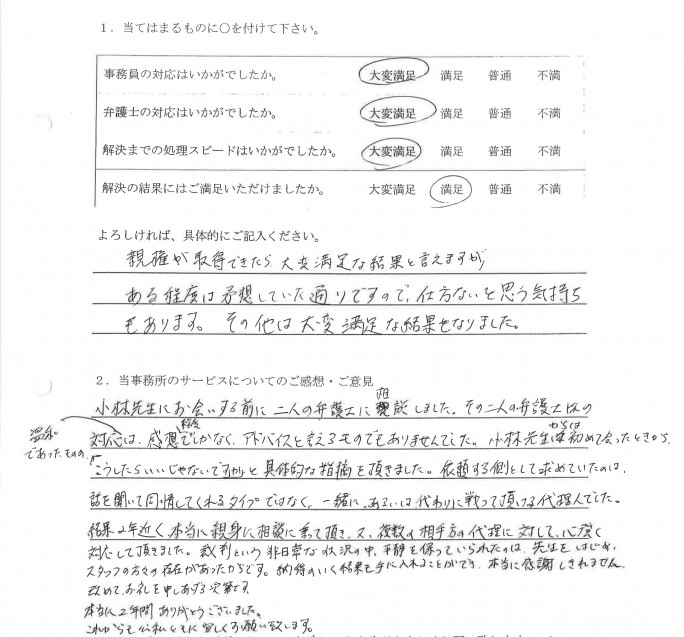 1．当てはまるものに○を付けて下さい。
事務員の対応はいかがでしたか。 大変満足 満足 普通 不満
弁護士の対応はいかがでしたか。 大変満足 満足 普通 不満
解決までの処理スピードはいかがでしたか。 大変満足 満足 普通 不満
解決の結果にはご満足いただけましたか。 大変満足 満足 普通 不満
よろしければ、具体的にご記入ください。
親権が取得できたら大変満足な結果と言えますが
ある程度は予想していた通りですので、仕方ないと思う気持ち
もあります。その他は大変満足な結果となりました。
2．当事務所のサービスについてのご感想・ご意見
小林先生にお会いする前に二人の弁護士に相談しました。その二人の弁護士はの
温和であったものの、
対応は、感想程度でしかなく、アドバイスと言えるものでもありませんでした。小林先生からは初めて会ったときから、
「こうしたらいいじゃないですか」と具体的な指摘を頂きました。依頼する側として求めていたのは、
話を聞いて同情してくれるタイプではなく、一緒に、あるいは代わりに戦って頂ける代理人でした。
結果2年近く本当に親身に相談に乗って頂き、又、複数の相手方の代理に対して、心強く
対応して頂きました。裁判という非日常な状況の中、平静を保っていられたのは、先生をはじめ、
スタッフの方々の存在があったからです。納得のいく結果も手に入れることができ、本当に感謝しきれません。
改めて、お礼を申しあげる次第です。
本当に2年間ありがとうございました。
これからも公私ともに宜しくお願い致します。